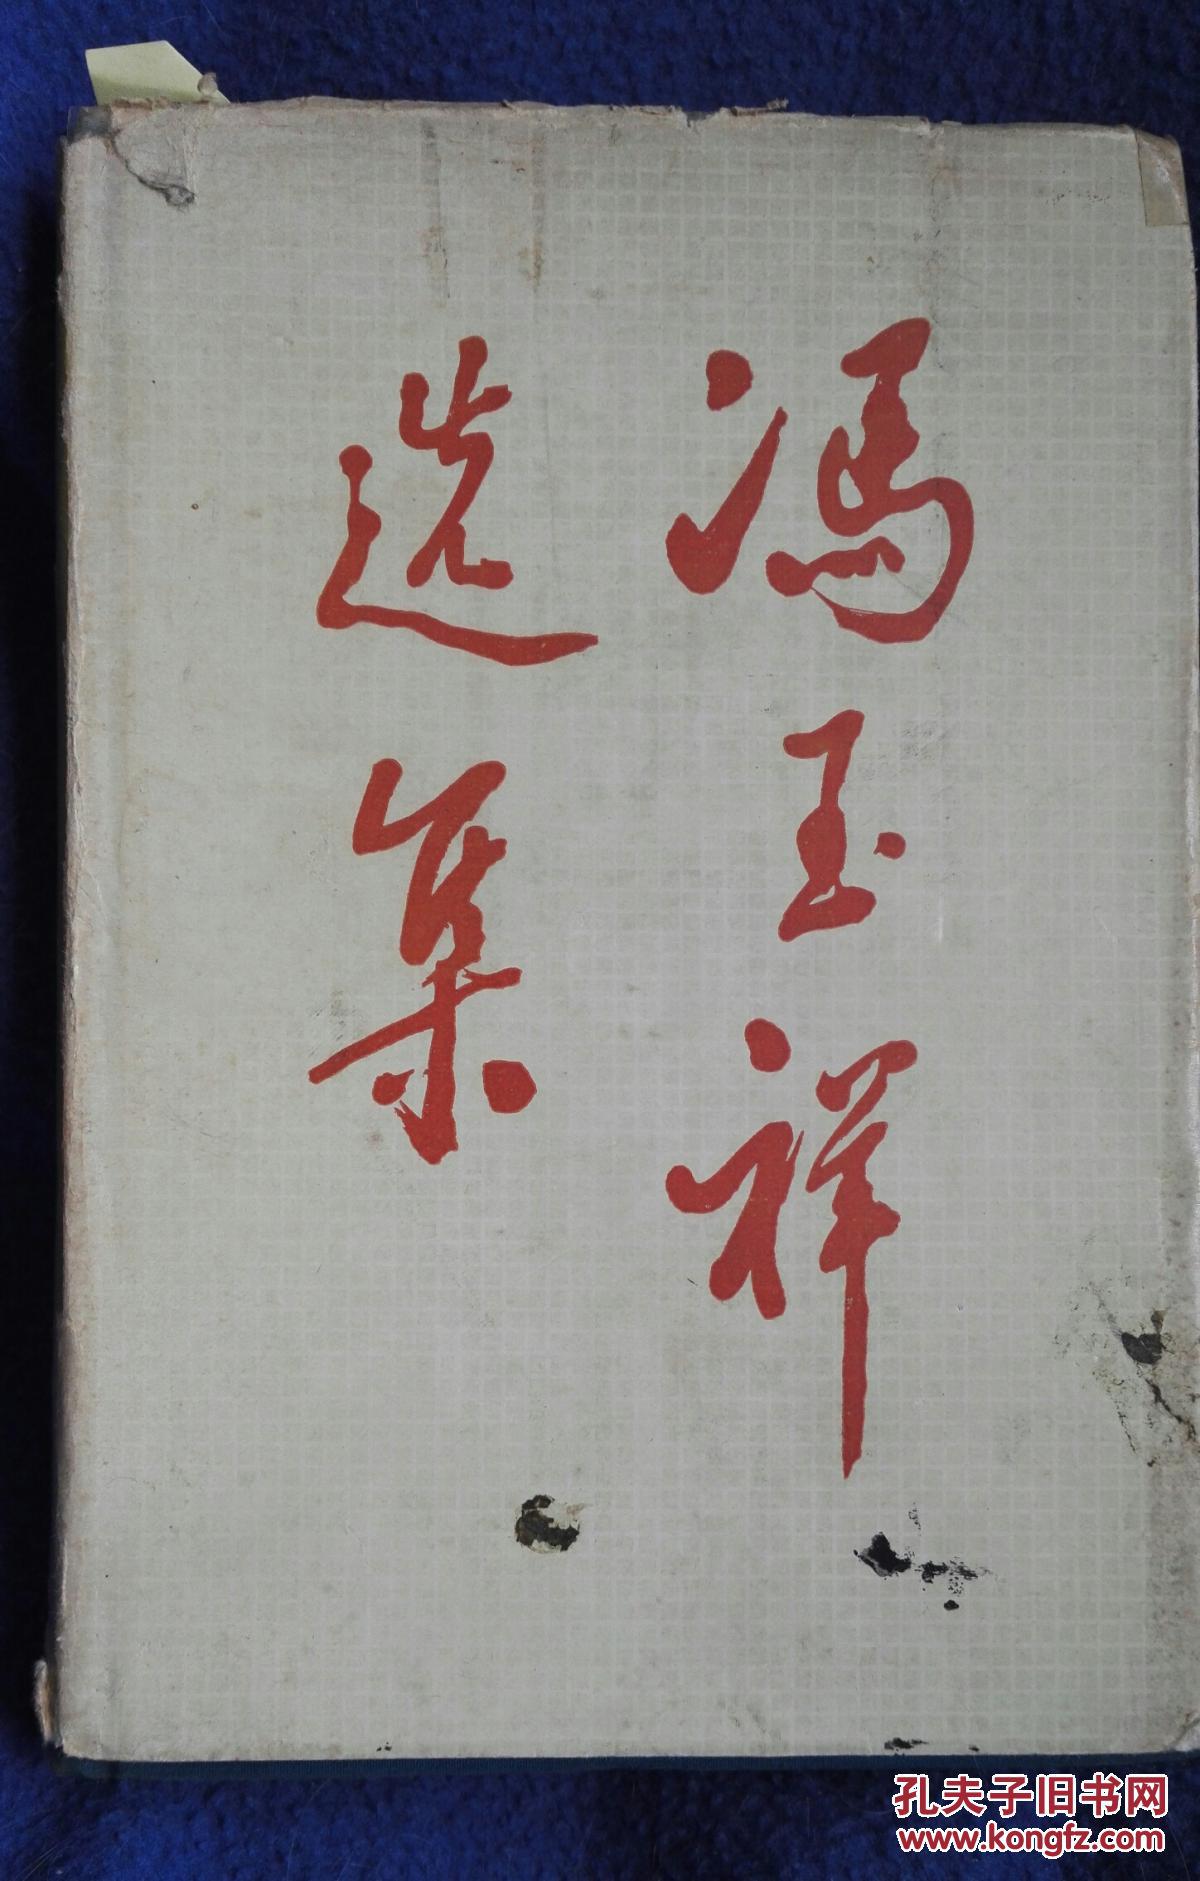 冯玉祥
选集
孔夫子旧书网
www.kongfz.com